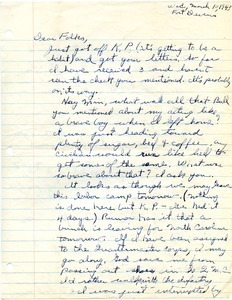 Wed, March 1, 1943
Fort Devens
Dear Folks,
Just got off K.P. (its getting to be a
habit) and got your letters. So far
I have received 3 and haven't
seen the check you mentioned. It's probably
on its way.
Hey Mim, what was all that Bull
you mentioned about my acting like
a brave boy when I left home? I
was just looking forward
plenty of sugar, beef & coffee. An
would run like hell to
get some of the same. What was
so brave about that? I asks you.
It looks as though we may leave
this labor camp tomorrow. (nothing
is done here but K.P. - Ive had it
4 days). Rumor has it that a
bunch is leaving for North Carolina
tomorrow. If I have been assigned
to the Quartermaster Corps, I may
go along, God save me from
passing out shoes in Q.M.C.
I'd rather the infantry.
I was just interrupted by